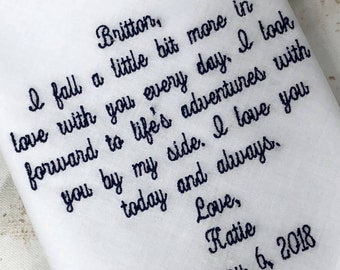 Britton,
I fall a little bit more in
love with you every day. I look
forward to life's adventures with
you by my side. I love you
today and always.
Love,
Katie
6, 2018